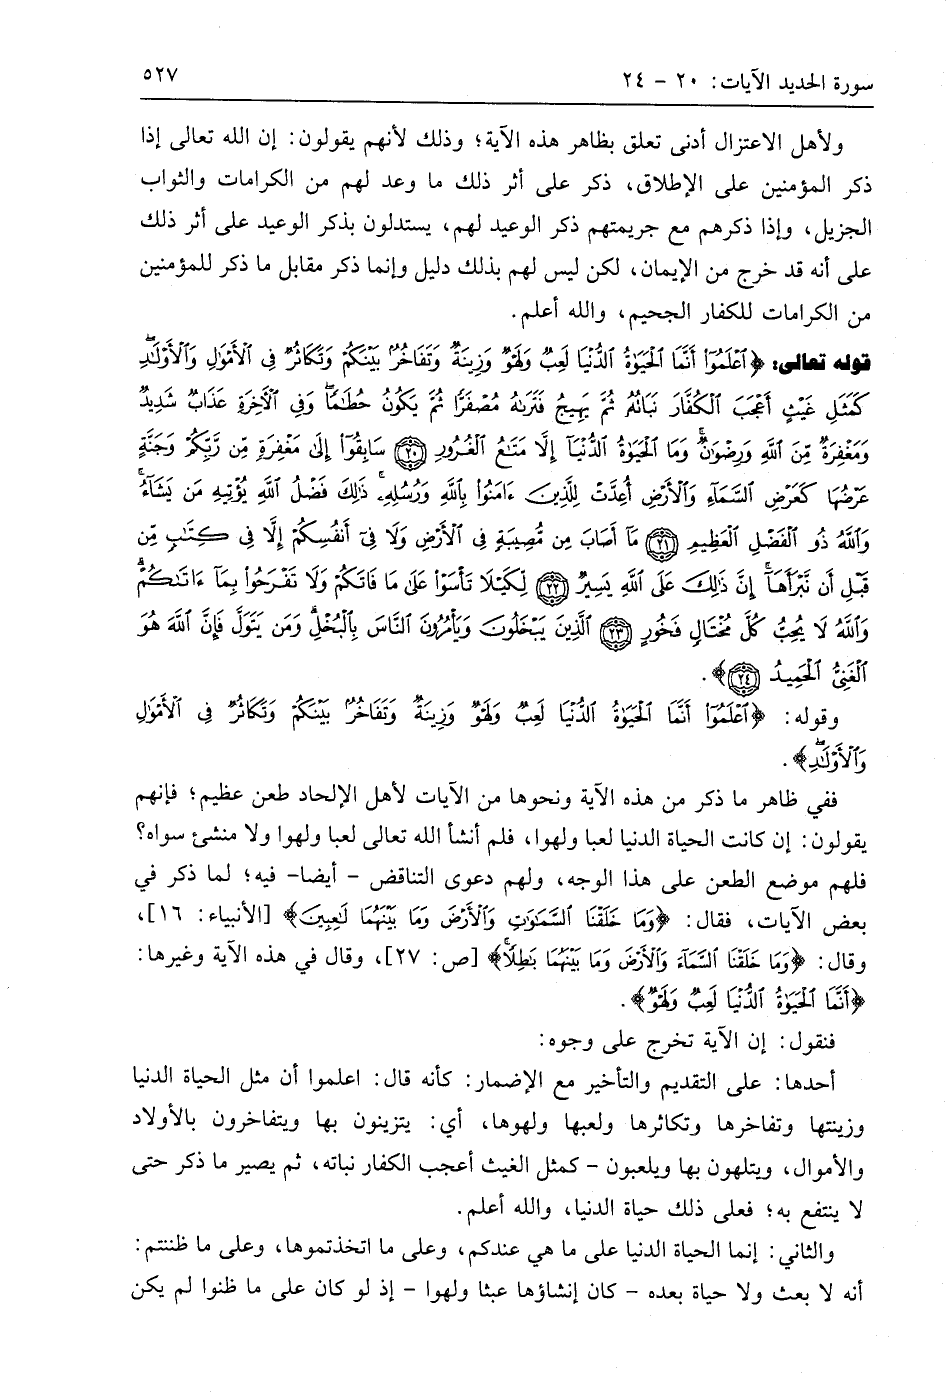 سورة الحديد الآيات: ٢٠ – ٢٤ ٥٢٧
ولأهل الاعتزال أدنى تعلق بظاهر هذه الآية؛ وذلك لأنهم يقولون: إن الله تعالى إذا
ذكر المؤمنين على الإطلاق، ذكر على أثر ذلك ما وعد لهم من الكرامات والثواب
الجزيل، وإذا ذكرهم مع جريمتهم ذكر الوعيد لهم، يستدلون بذكر الوعيد على أثر ذلك
على أنه قد خرج من الإيمان، لكن ليس لهم بذلك دليل وإنما ذكر مقابل ما ذكر للمؤمنين
من الكرامات للكفار الجحيم، والله أعلم.
قوله تعالى: ﴿ٱعۡلَمُوٓاْ أَنَّمَا ٱلۡحَيَوٰةُ ٱلدُّنۡيَا لَعِبٞ وَلَهۡوٞ وَزِينَةٞ وَتَفَاخُرُۢ بَيۡنَكُمۡ وَتَكَاثُرٞ فِي ٱلۡأَمۡوَٰلِ وَٱلۡأَوۡلَٰدِۖ
كَمَثَلِ غَيۡثٍ أَعۡجَبَ ٱلۡكُفَّارَ نَبَاتُهُۥ ثُمَّ يَهِيجُ فَتَرَىٰهُ مُصۡفَرّٗا ثُمَّ يَكُونُ حُطَٰمٗاۖ وَفِي ٱلۡأٓخِرَةِ عَذَابٞ شَدِيدٞ
وَمَغۡفِرَةٞ مِّنَ ٱللَّهِ وَرِضۡوَٰنٞۚ وَمَا ٱلۡحَيَوٰةُ ٱلدُّنۡيَآ إِلَّا مَتَٰعُ ٱلۡغُرُورِ ٢٠ سَابِقُوٓاْ إِلَىٰ مَغۡفِرَةٖ مِّن رَّبِّكُمۡ وَجَنَّةٍ
عَرۡضُهَا كَعَرۡضِ ٱلسَّمَآءِ وَٱلۡأَرۡضِ أُعِدَّتۡ لِلَّذِينَ ءَامَنُواْ بِٱللَّهِ وَرُسُلِهِۦۚ ذَٰلِكَ فَضۡلُ ٱللَّهِ يُؤۡتِيهِ مَن يَشَآءُۚ
وَٱللَّهُ ذُو ٱلۡفَضۡلِ ٱلۡعَظِيمِ ٢١ مَآ أَصَابَ مِن مُّصِيبَةٖ فِي ٱلۡأَرۡضِ وَلَا فِيٓ أَنفُسِكُمۡ إِلَّا فِي كِتَٰبٖ مِّن
قَبۡلِ أَن نَّبۡرَأَهَآۚ إِنَّ ذَٰلِكَ عَلَى ٱللَّهِ يَسِيرٞ ٢٢ لِّكَيۡلَا تَأۡسَوۡاْ عَلَىٰ مَا فَاتَكُمۡ وَلَا تَفۡرَحُواْ بِمَآ ءَاتَىٰكُمۡۗ
وَٱللَّهُ لَا يُحِبُّ كُلَّ مُخۡتَالٖ فَخُورٍ ٢٣ ٱلَّذِينَ يَبۡخَلُونَ وَيَأۡمُرُونَ ٱلنَّاسَ بِٱلۡبُخۡلِۗ وَمَن يَتَوَلَّ فَإِنَّ ٱللَّهَ هُوَ
ٱلۡغَنِيُّ ٱلۡحَمِيدُ ٢٤﴾.
وقوله: ﴿ٱعۡلَمُوٓاْ أَنَّمَا ٱلۡحَيَوٰةُ ٱلدُّنۡيَا لَعِبٞ وَلَهۡوٞ وَزِينَةٞ وَتَفَاخُرُۢ بَيۡنَكُمۡ وَتَكَاثُرٞ فِي ٱلۡأَمۡوَٰلِ
وَٱلۡأَوۡلَٰدِۖ﴾.
ففي ظاهر ما ذكر من هذه الآية ونحوها من الآيات لأهل الإلحاد طعن عظيم؛ فإنهم
يقولون: إن كانت الحياة الدنيا لعبا ولهوا، فلم أنشأ الله تعالى لعبا ولهوا ولا منشئ سواه؟
فلهم موضع الطعن على هذا الوجه، ولهم دعوى التناقض – أيضا– فيه؛ لما ذكر في
بعض الآيات، فقال: ﴿وَمَا خَلَقۡنَا ٱلسَّمَٰوَٰتِ وَٱلۡأَرۡضَ وَمَا بَيۡنَهُمَا لَٰعِبِينَ﴾ [الأنبياء: ١٦]،
وقال: ﴿وَمَا خَلَقۡنَا ٱلسَّمَآءَ وَٱلۡأَرۡضَ وَمَا بَيۡنَهُمَا بَٰطِلٗاۚ﴾ [ص: ٢٧]، وقال في هذه الآية وغيرها:
﴿أَنَّمَا ٱلۡحَيَوٰةُ ٱلدُّنۡيَا لَعِبٞ وَلَهۡوٞ﴾.
فنقول: إن الآية تخرج على وجوه:
أحدها: على التقديم والتأخير مع الإضمار: كأنه قال: اعلموا أن مثل الحياة الدنيا
وزينتها وتفاخرها وتكاثرها ولعبها ولهوها، أي: يتزينون بها ويتفاخرون بالأولاد
والأموال، ويتلهون بها ويلعبون – كمثل الغيث أعجب الكفار نباته، ثم يصير ما ذكر حتى
لا ينتفع به؛ فعلى ذلك حياة الدنيا، والله أعلم.
والثاني: إنما الحياة الدنيا على ما هي عندكم، وعلى ما اتخذتموها، وعلى ما ظننتم:
أنه لا بعث ولا حياة بعده – كان إنشاؤها عبثا ولهوا – إذ لو كان على ما ظنوا لم يكن